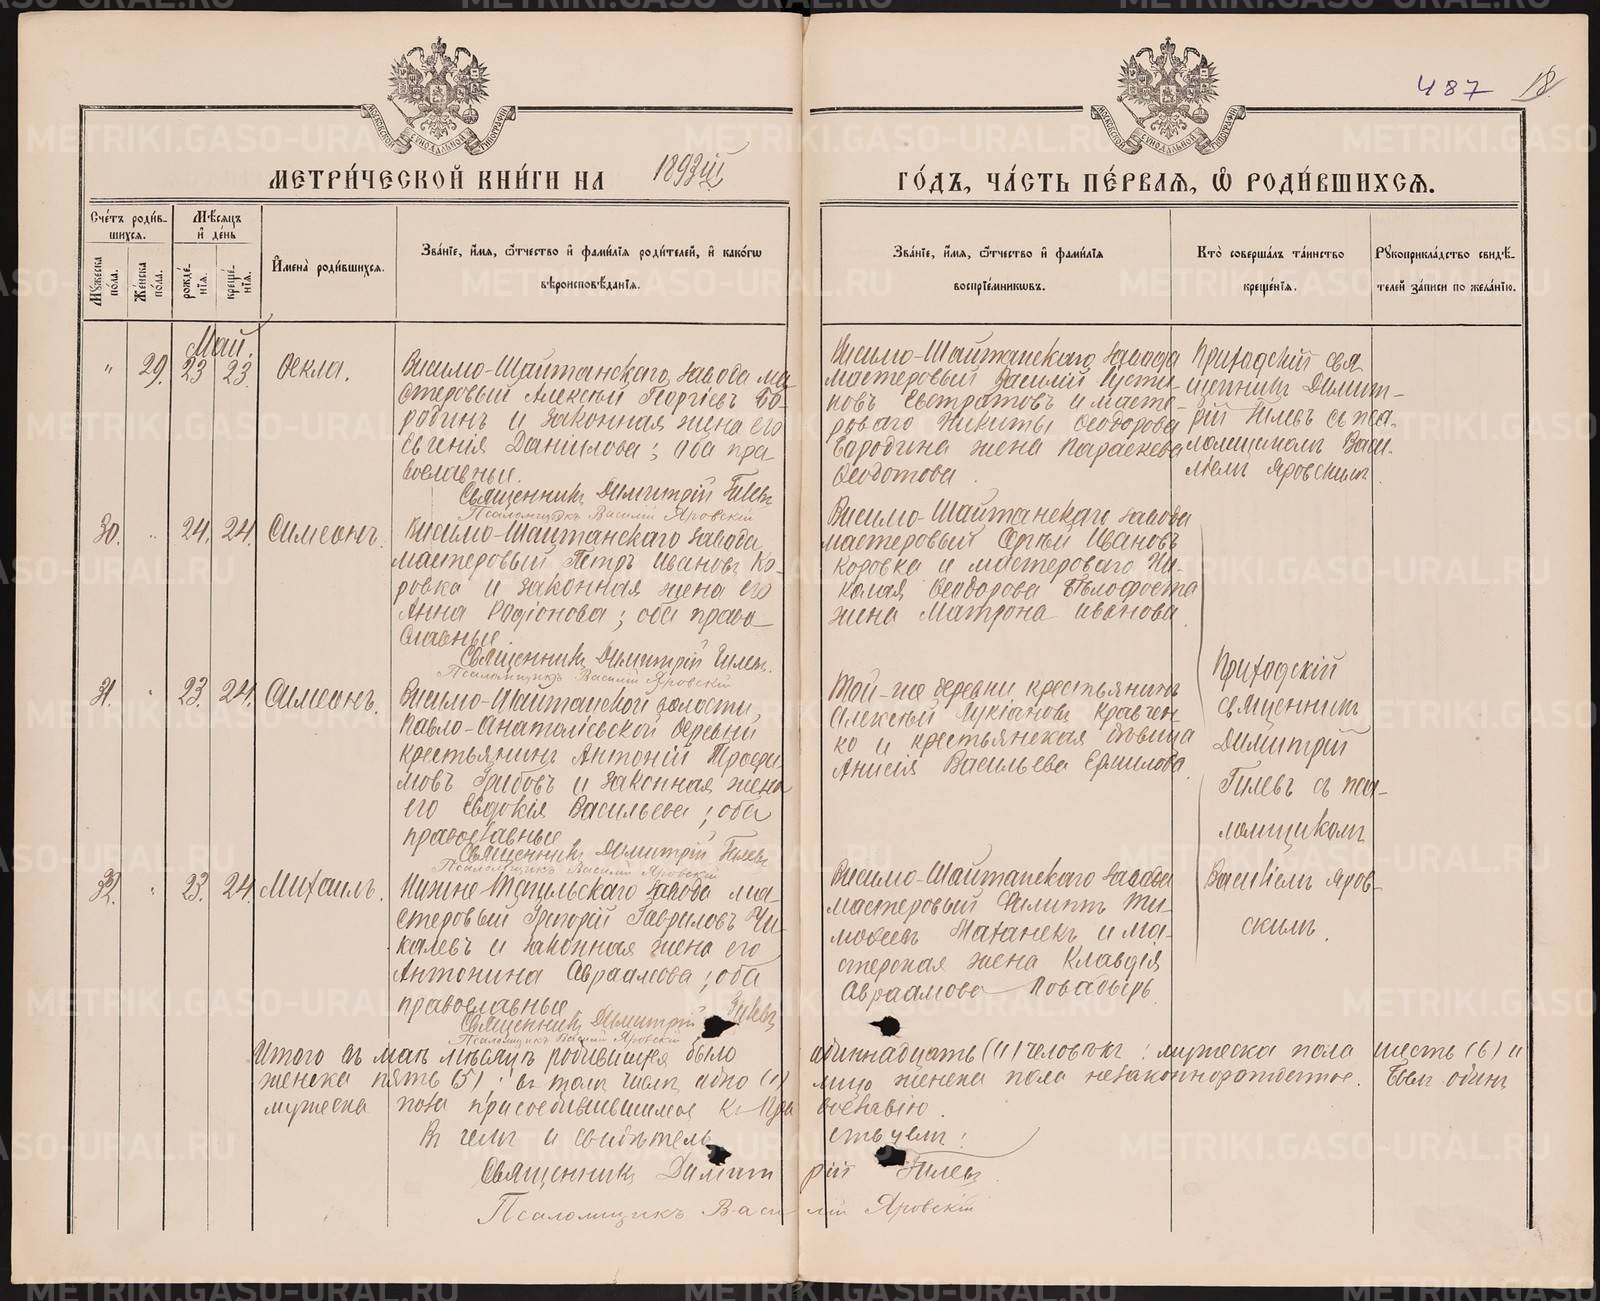 487 18
МОСКОВСКОЙ СѴНОДАЛЬНОЙ ТИПОГРАФІИ
МОСКОВСКОЙ СѴНОДАЛЬНОЙ ТИПОГРАФІИ
МЕТРИ́ЧЕСКОЙ КНИ́ГИ НА 1893й
ГО́ДЪ, ЧА́СТЬ ПЕ́РВАЯ, Ѡ҆ РОДИ́ВШИХСЯ.
Сче́тъ роди́в-
шихся.
Мѣсяцъ
и҆ де́нь
Мꙋжеска по́ла.
Же́нска по́ла.
рожде́-
нїѧ.
креще́-
нїѧ.
И҆мена̀ роди́вшихся.
Зва́нїе, и҆́мя, ѻ҆́тчество и҆ фами́лїя роди́телей, и҆ како́гѡ
вѣроисповѣ́данїя.
Зва́нїе, и҆́мя, ѻ҆́тчество и҆ фами́лїя
воспрїе́мникѡвъ.
Кто̀ соверша́лъ та́инство
креще́нїя.
Рꙋкоприкла́дство свидѣ́-
телей за́писи по жела́нїю.
Май.
" 29. 23 23. Ѳекла.
Висимо-Шайтанскаго завода ма-
стеровый Алексѣй Георгіевъ Бо-
родинъ и законная жена его
Евгенія Даніилова; оба пра
вославные.
Священникъ Димитрій Гилевъ
Псаломщикъ Василій Яровскій
Висимо-Шайтанскаго завода
мастеровый Василій Густи-
новъ Евстратовъ и масте-
роваго Никиты Ѳеодорова
Бородина жена Параскева
Ѳеодотова.
Приходскій свя
щенникъ Димит-
рій Гилевъ съ пса-
ломщикомъ Васи-
ліемъ Яровскимъ
30. " 24. 24. Симеонъ.
Висимо-Шайтанскаго завода
мастеровый Петръ Ивановъ Ко-
ровка и законная жена его
Анна Родіонова; оба право
славные.
Священникъ Димитрій Гилевъ.
Псаломщикъ Василій Яровскій
Висимо-Шайтанскаго завода
мастеровый Сергѣй Ивановъ
Коровка и мастероваго Ни-
колая Ѳеодорова Бѣлофоста
жена Матрона Иванова.
31. " 23. 24. Симеонъ.
Висимо-Шайтанской волости,
Павло-Анатоліевской деревни
крестьянинъ Антоній Трофи
мовъ Грибовъ и законная жена
его Евдокія Васильева; оба
православные
Священникъ Димитрій Гилевъ
Псаломщикъ Василій Яровскій
Той-же деревни крестьянинъ
Алексѣй Лукіановъ Кравчен-
ко и крестьянская дѣвица
Анисія Васильева Ермилова.
Приходскій
священникъ
Димитрій
Гилевъ съ пса-
ломщикомъ
Василіемъ Яров-
скимъ.
32. " 23. 24. Михаилъ.
Нижне-Тагильскаго завода ма-
стеровый Григорій Гавриловъ Чи-
калевъ и законная жена его
Антонина Авраамова; оба
православные
Священникъ Димитрій Гилевъ
Псаломщикъ Василій Яровскій
Висимо-Шайтанскаго завода
мастеровый Филиппъ Ти-
моѳеевъ Матанекъ и ма-
стерская жена Клавдія
Авраамова Повадырь.
Итого въ маѣ мѣсяцѣ родившихся было одиннадцать (11) человѣкъ: мужеска пола шесть (6) и
женска пять (5); въ томъ числѣ одно (1) лицо женска пола незаконнорожденное. Былъ одинъ
мужеска пола присоединившимся къ Пра вославію.
Въ чемъ и свидѣтель ствуемъ:
Священникъ Димит рій Гилевъ.
Псаломщикъ Васи лій Яровскій
METRIKI.GASO-URAL.RU